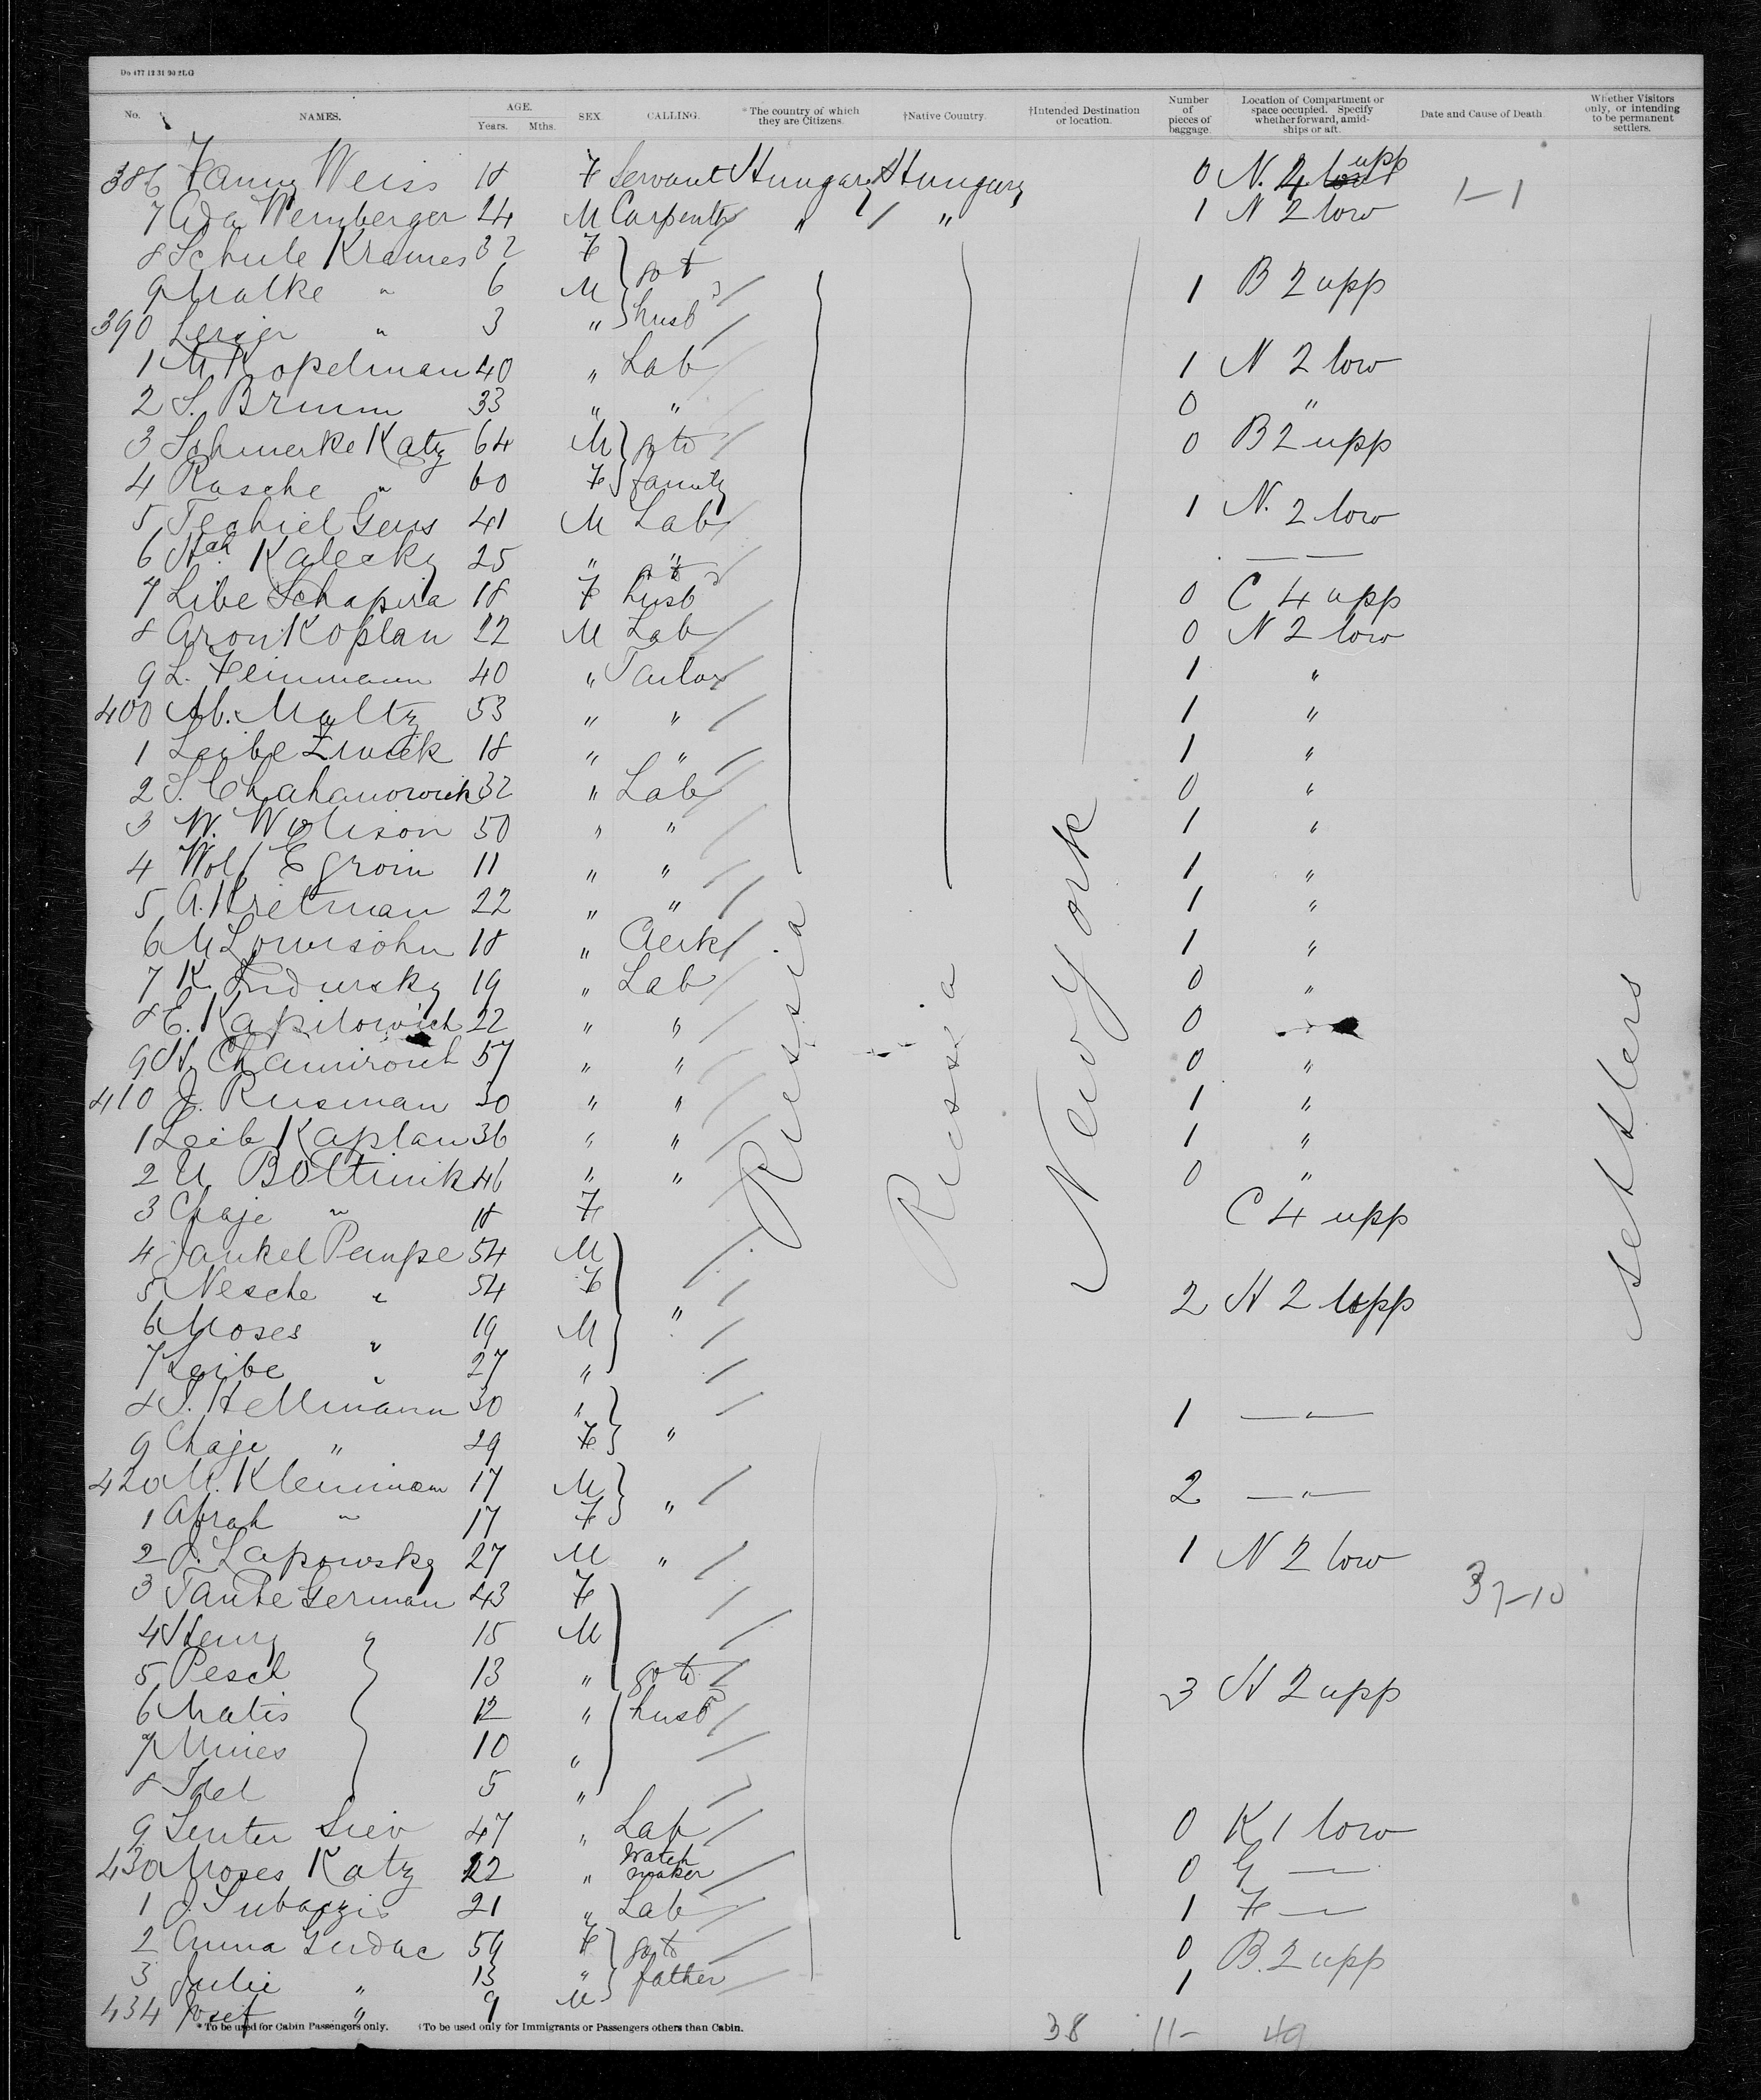 Do 477 12 31 90 2LG
No. NAMES. AGE. Years. Mths. SEX. CALLING. *The country of which they are Citizens. †Native Country. †Intended Destination or location. Number of pieces of baggage. Location of Compartment or space occupied. Specify whether forward, amid-ships or aft. Date and Cause of Death. Whether Visitors only, or intending to be permanent settlers.
386 Fanny Weiss 18 F Servant Hungary Hungary 0 N. 4 upp 1-1
7 Ada Weinberger 24 M Carpenter " " 1 N 2 low
8 Schule Krames 32 F
9 Malke " 6 M go to 1 B 2 upp
390 Leiser " 3 " husb
1 M. Kopelman 40 " Lab 1 N 2 low
2 S. Brumm 33 " " 0 "
3 Schmerke Katz 64 M go to 0 B 2 upp
4 Rasche " 60 F family
5 Techiel Gens 41 M Lab 1 N. 2 low
6 Kalecky 25 " " — —
7 Libe Schapira 18 F go to husb 0 C 4 upp
8 Aron Koplan 22 M Lab 0 N 2 low
9 L. Feinmann 40 " Tailor 1 "
400 Ab. Maltz 53 " " 1 "
1 Leibe Zwick 18 " " 1 "
2 S. Chahanowich 32 " Lab 0 "
3 W. Wolison 50 " " 1 "
4 Wolf Egroin 11 " " 1 "
5 A. Kretman 22 " " 1 "
6 M Lowisohn 18 " Clerk 1 "
7 K. Lidursky 19 " Lab 0 "
8 E. Kapilowich 22 " " 0 "
9 H. Chamirowit 57 " " 0 "
410 J. Rusman 30 " " 1 "
1 Leib Kaplan 36 " " 1 "
2 U. Boltinik 46 " " 0 "
3 Chaje " 18 F C 4 upp
4 Jankel Pempe 54 M
5 Nesche " 54 F 2 H 2 upp
6 Moses " 19 M "
7 Leibe " 27 "
8 S. Hellmann 30 " 1 — " —
9 Chaje " 29 F "
420 M. Kleinman 17 M 2 — " —
1 Abrah " 17 F "
2 J. Lapowsky 27 M " 1 N 2 low
3 Taube German 43 F 37-10
4 Henry " 15 M
5 Pesch 13 " go to 3 H 2 upp
6 Matis 12 " husb
7 Mines 10 "
8 Idel 5 "
9 Senter Siev 47 " Lab 0 K 1 low
430 Moses Katz 22 " Watch maker 0 G —
1 J. Subaczis 21 " Lab 1 F —
2 Anna Gudac 59 F go to 0 B. 2 upp
3 Julie " 13 " father 1
434 Josef " 9 M
Russia
Russia
New York
settlers
*To be used for Cabin Passengers only. †To be used only for Immigrants or Passengers others than Cabin.
38 11- 49